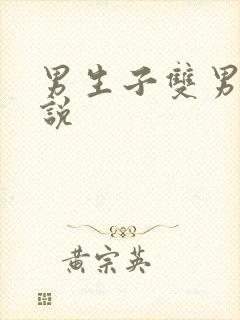 男生子雙男
說
黃宗英